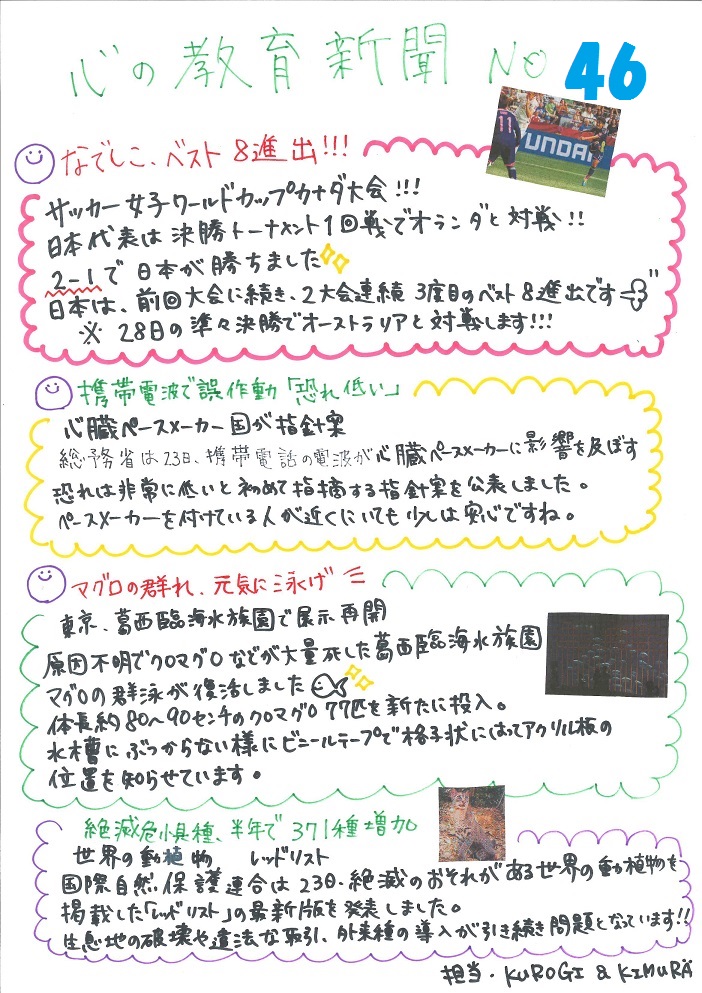 心の教育新聞 No 46
なでしこ、ベスト8進出!!!
11
UNDAI
サッカー女子ワールドカップカナダ大会!!!
日本代表は決勝トーナメント1回戦でオランダと対戦!!
2-1で日本が勝ちました
日本は、前回大会に続き、2大会連続3度目のベスト8進出です
※28日の準々決勝でオーストラリアと対戦します!!!
携帯電波で誤作動「恐れ低い」
心臓ペースメーカー国が指針案
総務省は23日、携帯電話の電波が心臓ペースメーカーに影響を及ぼす
恐れは非常に低いと初めて指摘する指針案を公表しました。
ペースメーカーを付けている人が近くにいても少しは安心ですね。
マグロの群れ、元気に泳げ
東京、葛西臨海水族園で展示再開
原因不明でクロマグロなどが大量死した葛西臨海水族園
マグロの群泳が復活しました
体長約80〜90センチのクロマグロ77匹を新たに投入。
水槽にぶつからない様にビニールテープで格子状にはってアクリル板の
位置を知らせています。
絶滅危惧種、半年で371種増加
世界の動植物 レッドリスト
国際自然保護連合は23日、絶滅のおそれがある世界の動植物を
掲載した「レッドリスト」の最新版を発表しました。
生息地の破壊や違法な取引、外来種の導入が引き続き問題となっています!!
担当・KUROGI & KIMURA